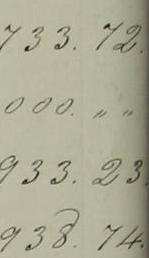 733. 72.
000. " "
933. 23.
938. 74.